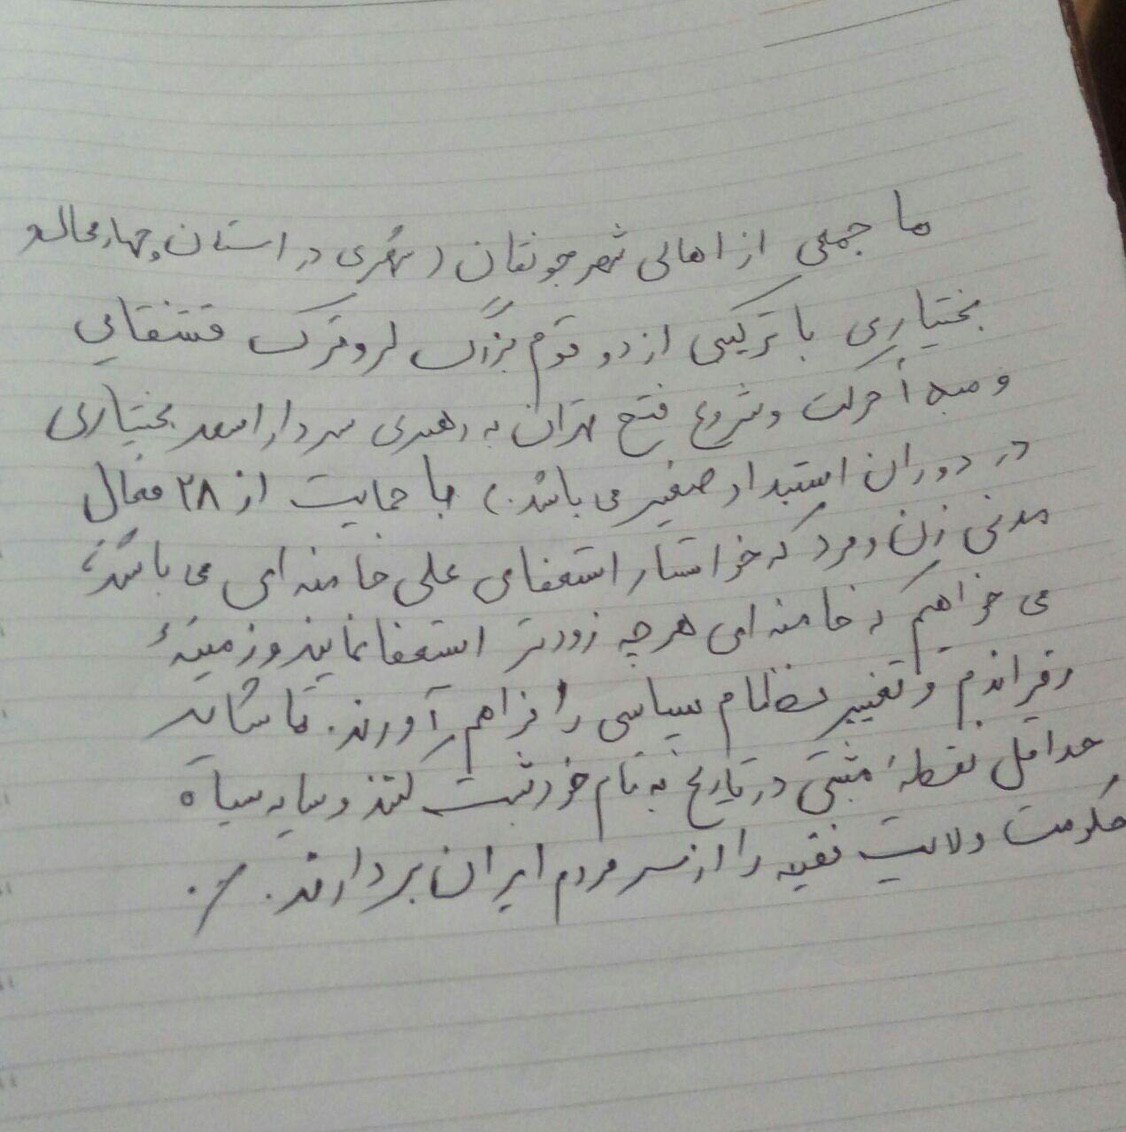 ما جمعی از اهالی شهر جونقان (شهری در استان چهارمحال و
بختیاری با ترکیبی از دو قوم بزرگ لر و ترک قشقایی
و مبدأ حرکت و شروع فتح تهران به رهبری سردار اسعد بختیاری
در دوران استبداد صغیر می باشد.) با حمایت از ۲۸ فعال
مدنی زن و مرد که خواستار استعفای علی خامنه ای می باشند،
می خواهیم که خامنه ای هر چه زودتر استعفا نمایند و زمینهٔ
رفراندم و تغییر نظام سیاسی را فراهم آورند. تا شاید
حداقل نقطهٔ مثبتی در تاریخ به نام خود ثبت کنند و سایه سیاه
حکومت ولایت فقیه را از سر مردم ایران بردارند. ./